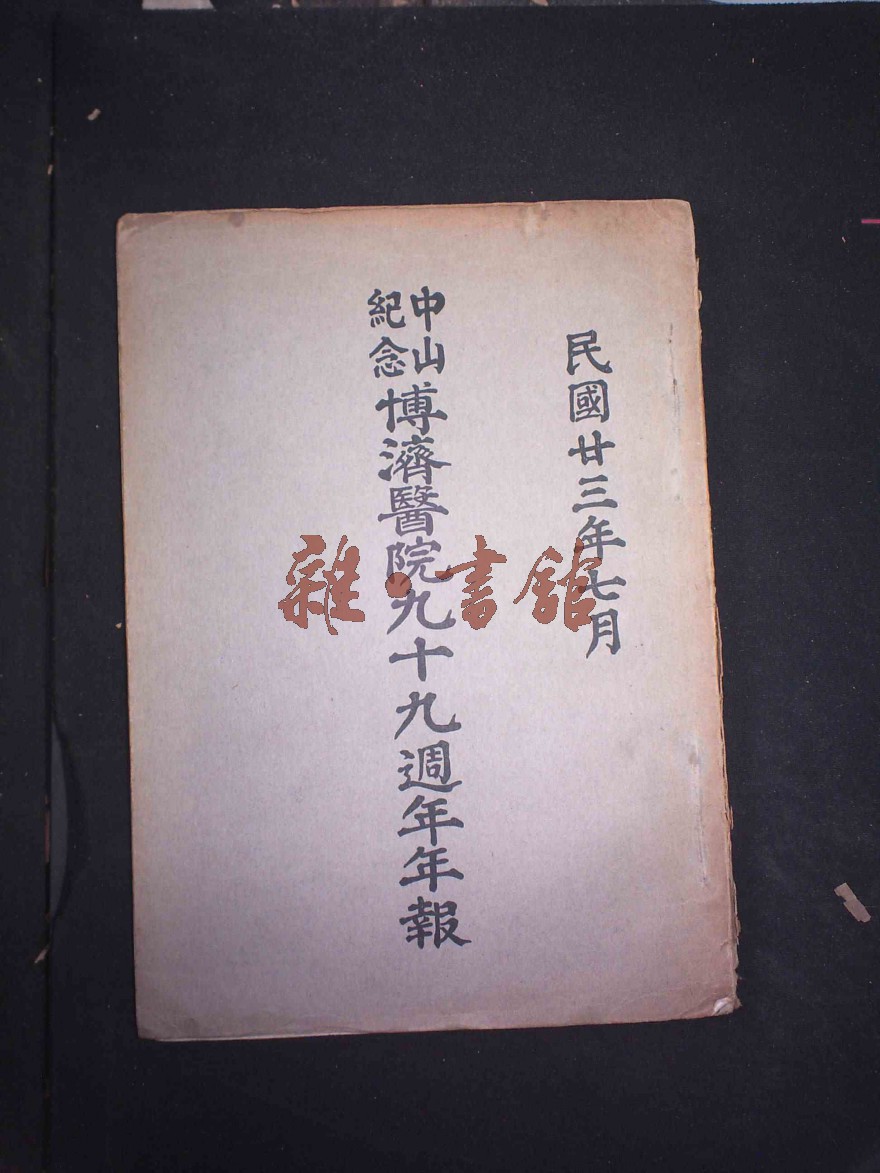 民國廿三年七月
中山紀念博濟醫院九十九週年年報
雜·書館